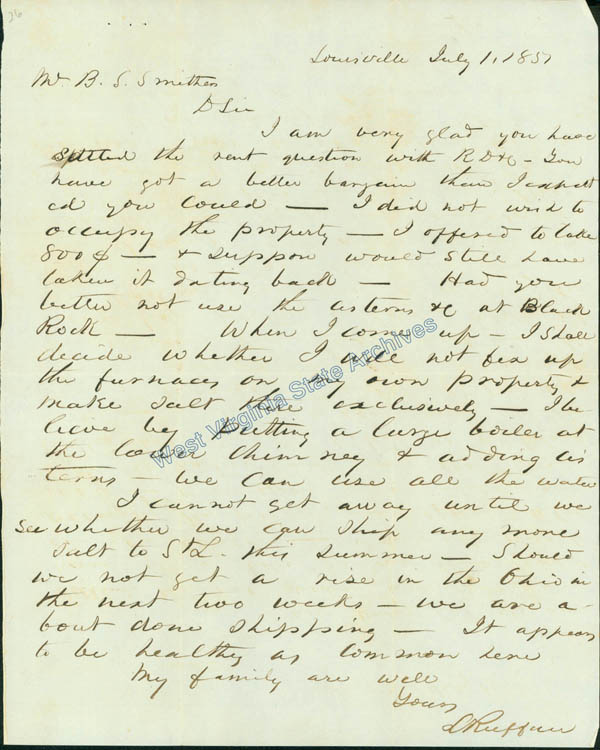 26
Louisville July 1, 1851
Mr B. S. Smithers
D Sir
I am very glad you have
settled the rent question with R D & C - You
have got a better bargain than I expect
ed you could — I did not wish to
occupy the property — I offered to take
800$ — & suppose would still have
taken it dating back — Had you
better not use the cisterns &c at Black
Rock — When I come up - I shall
decide whether I will not fix up
the furnaces on my own property &
make salt there exclusively — I be
lieve by putting a large boiler at
the chimney & adding cis
terns - we can use all the water
I cannot get away until we
see whether we can ship any more
salt to St L. this summer — Should
we not get a rise in the Ohio in
the next two weeks — we are a-
bout done shipping — It appears
to be healthy as common here
My family are well
Yours
L Ruffner
West Virginia State Archives